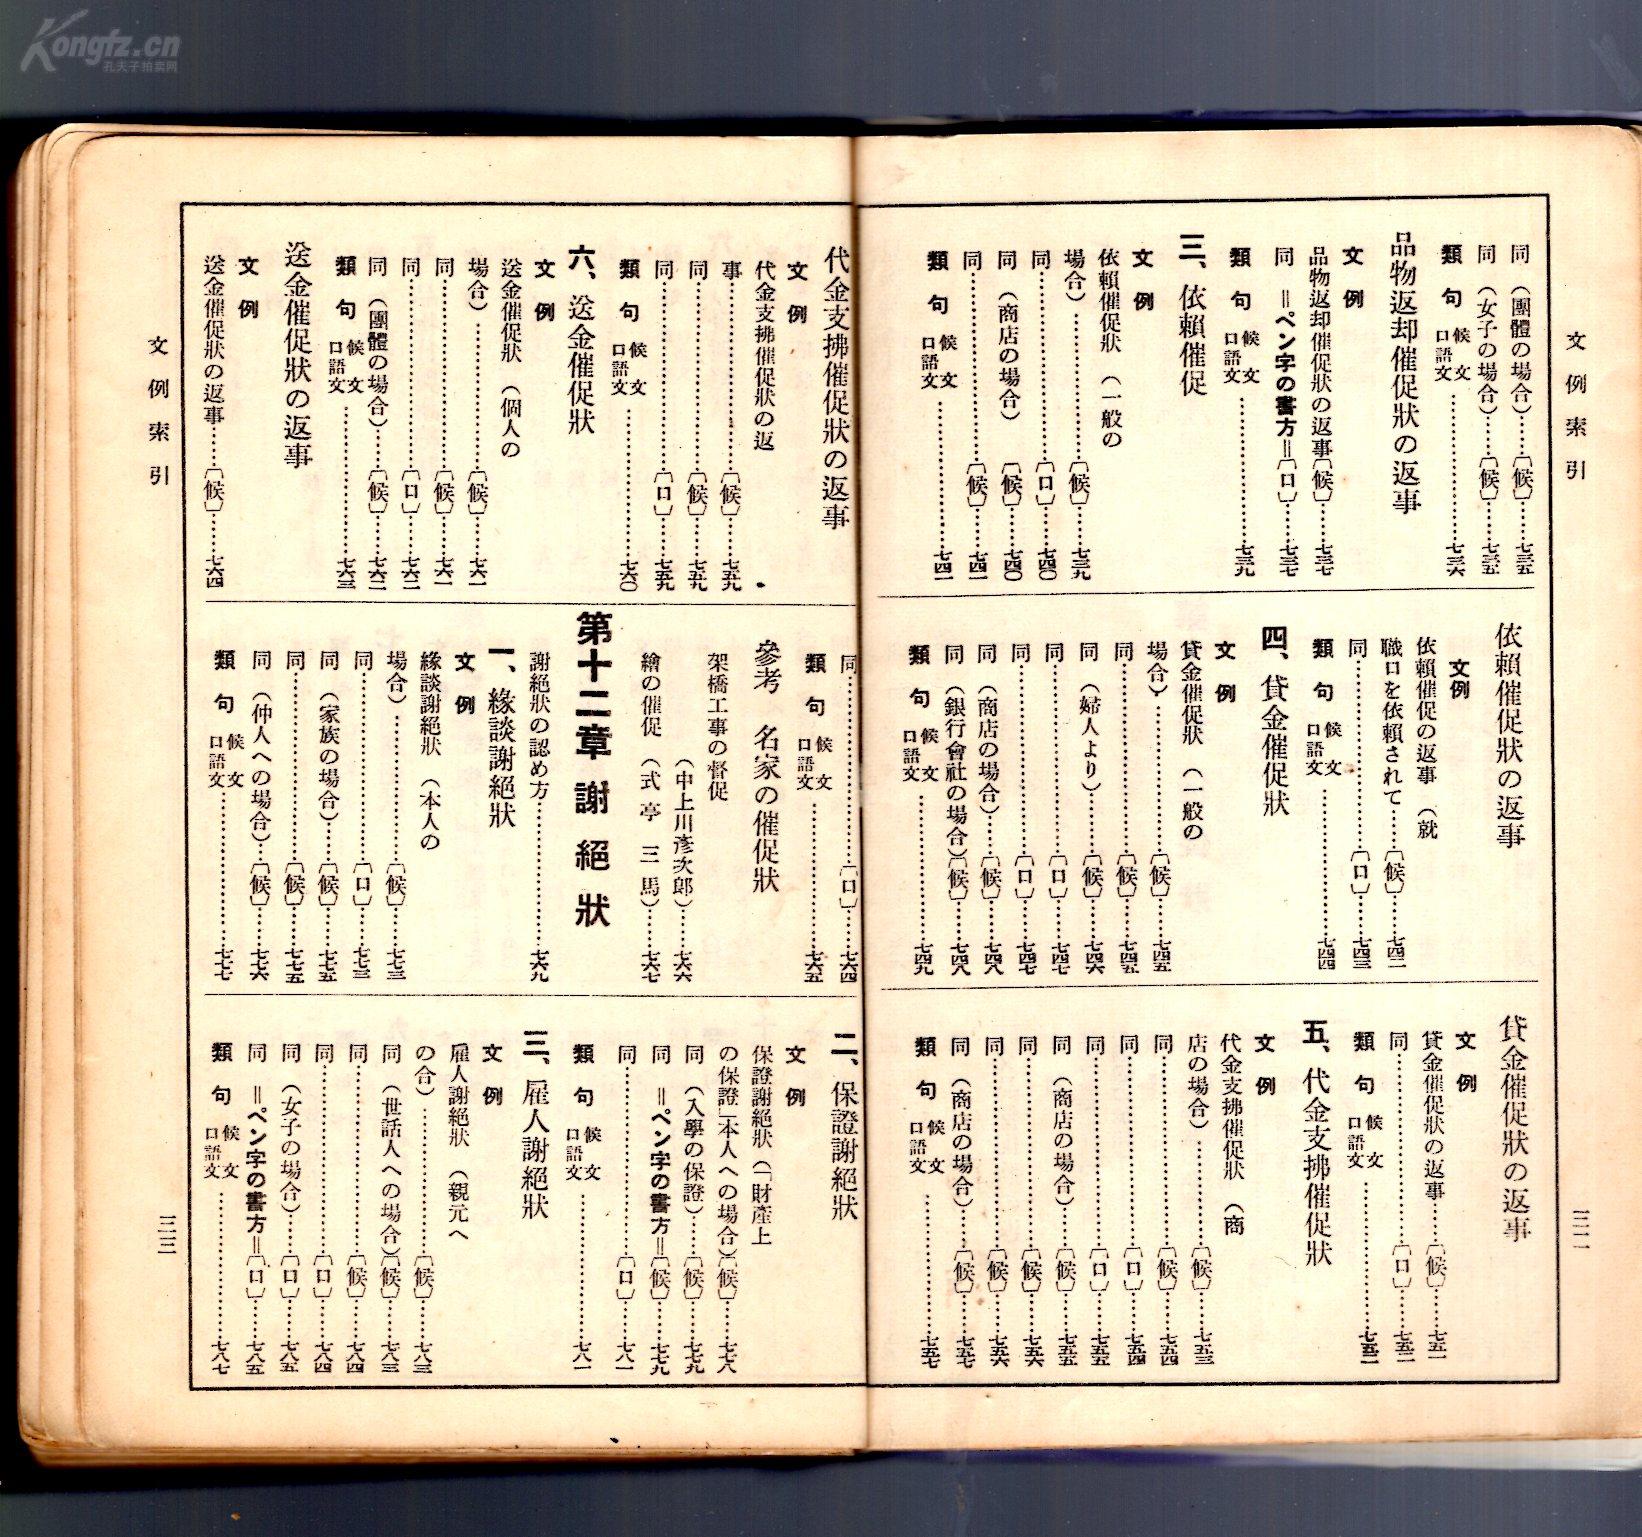 Kongfz.cn
孔夫子拍卖网
文例索引
三二
同（團體の場合）……〔候〕……七三五
同（女子の場合）……〔候〕……七三五
類句 候文 口語文……七三六
品物返却催促狀の返事
文例
品物返却催促狀の返事〔候〕……七三七
同 ＝ペン字の書方＝〔口〕……七三七
類句 候文 口語文……七三九
三、依賴催促
文例
依賴催促狀（一般の
場合）……〔候〕……七三九
同……〔口〕……七四〇
同（商店の場合）〔候〕……七四〇
同……〔候〕……七四一
類句 候文 口語文……七四一
依賴催促狀の返事
文例
依賴催促の返事（就
職口を依賴されて……〔候〕……七四二
同……〔口〕……七四三
類句 候文 口語文……七四四
四、貸金催促狀
文例
貸金催促狀（一般の
場合）……〔候〕……七四五
同……〔候〕……七四五
同（婦人より）……〔候〕……七四六
同……〔口〕……七四七
同……〔口〕……七四七
同（商店の場合）……〔候〕……七四八
同（銀行會社の場合）〔候〕……七四八
類句 候文 口語文……七四九
貸金催促狀の返事
文例
貸金催促狀の返事……〔候〕……七五一
同……〔口〕……七五二
類句 候文 口語文……七五二
五、代金支拂催促狀
文例
代金支拂催促狀（商
店の場合）……〔候〕……七五三
同……〔候〕……七五四
同……〔口〕……七五四
同……〔口〕……七五五
同（商店の場合）……〔候〕……七五五
同……〔候〕……七五六
同……〔候〕……七五六
同（商店の場合）……〔候〕……七五七
類句 候文 口語文……七五七
代金支拂催促狀の返事
文例
代金支拂催促狀の返
事……〔候〕……七五九
同……〔候〕……七五九
同……〔口〕……七五九
類句 候文 口語文……七六〇
六、送金催促狀
文例
送金催促狀（個人の
場合）……〔候〕……七六一
同……〔候〕……七六一
同……〔口〕……七六二
同（團體の場合）……〔候〕……七六二
類句 候文 口語文……七六三
送金催促狀の返事
文例
送金催促狀の返事……〔候〕……七六四
同……〔口〕……七六四
類句 候文 口語文……七六五
參考 名家の催促狀
架橋工事の督促
（中上川彥次郞）……七六六
繪の催促（式亭三馬）……七六七
第十二章 謝絕狀
謝絕狀の認め方……七六九
一、緣談謝絕狀
文例
緣談謝絕狀（本人の
場合）……〔候〕……七七三
同……〔口〕……七七三
同（家族の場合）……〔候〕……七七五
同……〔候〕……七七五
同（仲人への場合）……〔候〕……七七六
類句 候文 口語文……七七七
二、保證謝絕狀
文例
保證謝絕狀（「財產上
の保證」本人への場合）〔候〕……七七八
同（入學の保證）……〔候〕……七七九
同 ＝ペン字の書方＝〔候〕……七七九
同……〔口〕……七八一
類句 候文 口語文……七八一
三、雇人謝絕狀
文例
雇人謝絕狀（親元へ
の合）……〔候〕……七八三
同（世話人への場合）〔候〕……七八三
同……〔候〕……七八四
同……〔口〕……七八四
同（女子の場合）……〔口〕……七八五
同 ＝ペン字の書方＝〔口〕……七八五
類句 候文 口語文……七八七
文例索引
三三